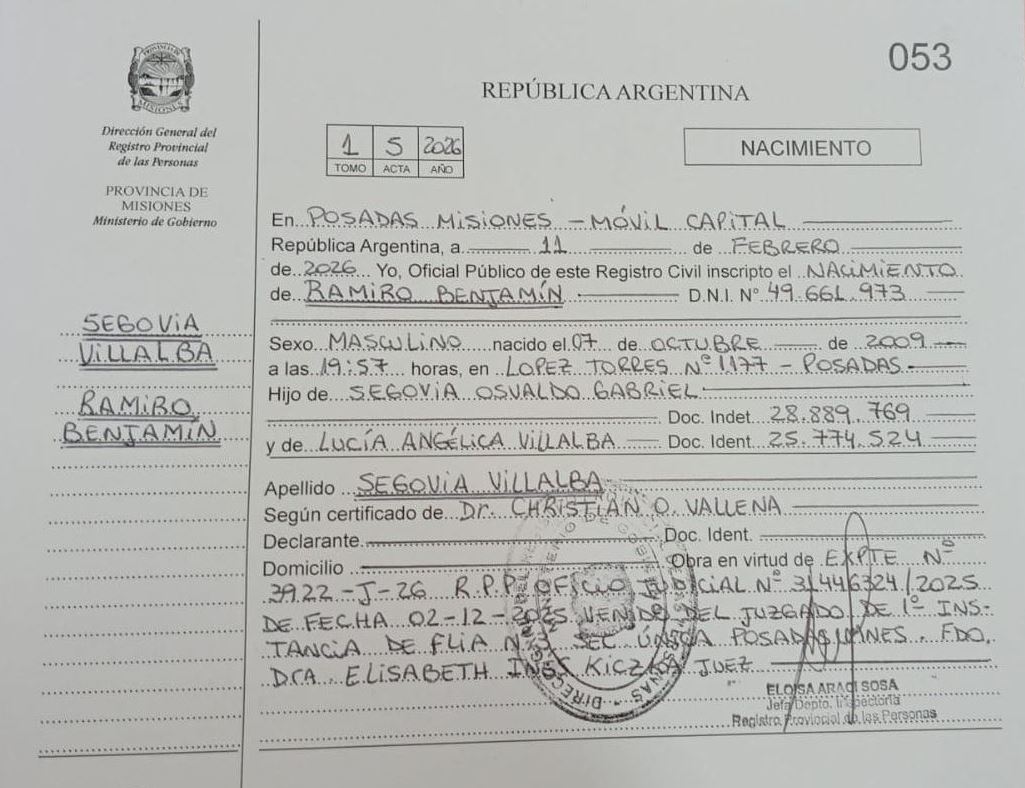 053
REPÚBLICA ARGENTINA
PROVINCIA DE MISIONES
Dirección General del
Registro Provincial
de las Personas
PROVINCIA DE
MISIONES
Ministerio de Gobierno
1 5 2026
TOMO ACTA AÑO
NACIMIENTO
SEGOVIA
VILLALBA
RAMIRO
BENJAMÍN
En POSADAS MISIONES - MÓVIL CAPITAL
República Argentina, a 11 de FEBRERO
de 2026 Yo, Oficial Público de este Registro Civil inscripto el NACIMIENTO
de RAMIRO BENJAMÍN D.N.I. N° 49.661.973
Sexo MASCULINO nacido el 07 de OCTUBRE de 2009
a las 19:57 horas, en LOPEZ TORRES N° 1177 - POSADAS
Hijo de SEGOVIA OSVALDO GABRIEL
Doc. Indet. 28.889.769
y de LUCÍA ANGÉLICA VILLALBA Doc. Ident. 25.774.524
Apellido SEGOVIA VILLALBA
Según certificado de Dr. CHRISTIAN O. VALLENA
Declarante Doc. Ident.
Domicilio Obra en virtud de EXPTE N°
3922-J-26 R.P.P. OFICIO JUDICIAL N° 31446324/2025
DE FECHA 02-12-2025 VENIDO DEL JUZGADO DE 1° INS-
TANCIA DE FLIA SEC ÚNICA POSADAS FDO.
DRA. ELISABETH JUEZ
ELOISA ARACI SOSA
Jefa Depto. Inspectoria
Registro Provincial de las Personas